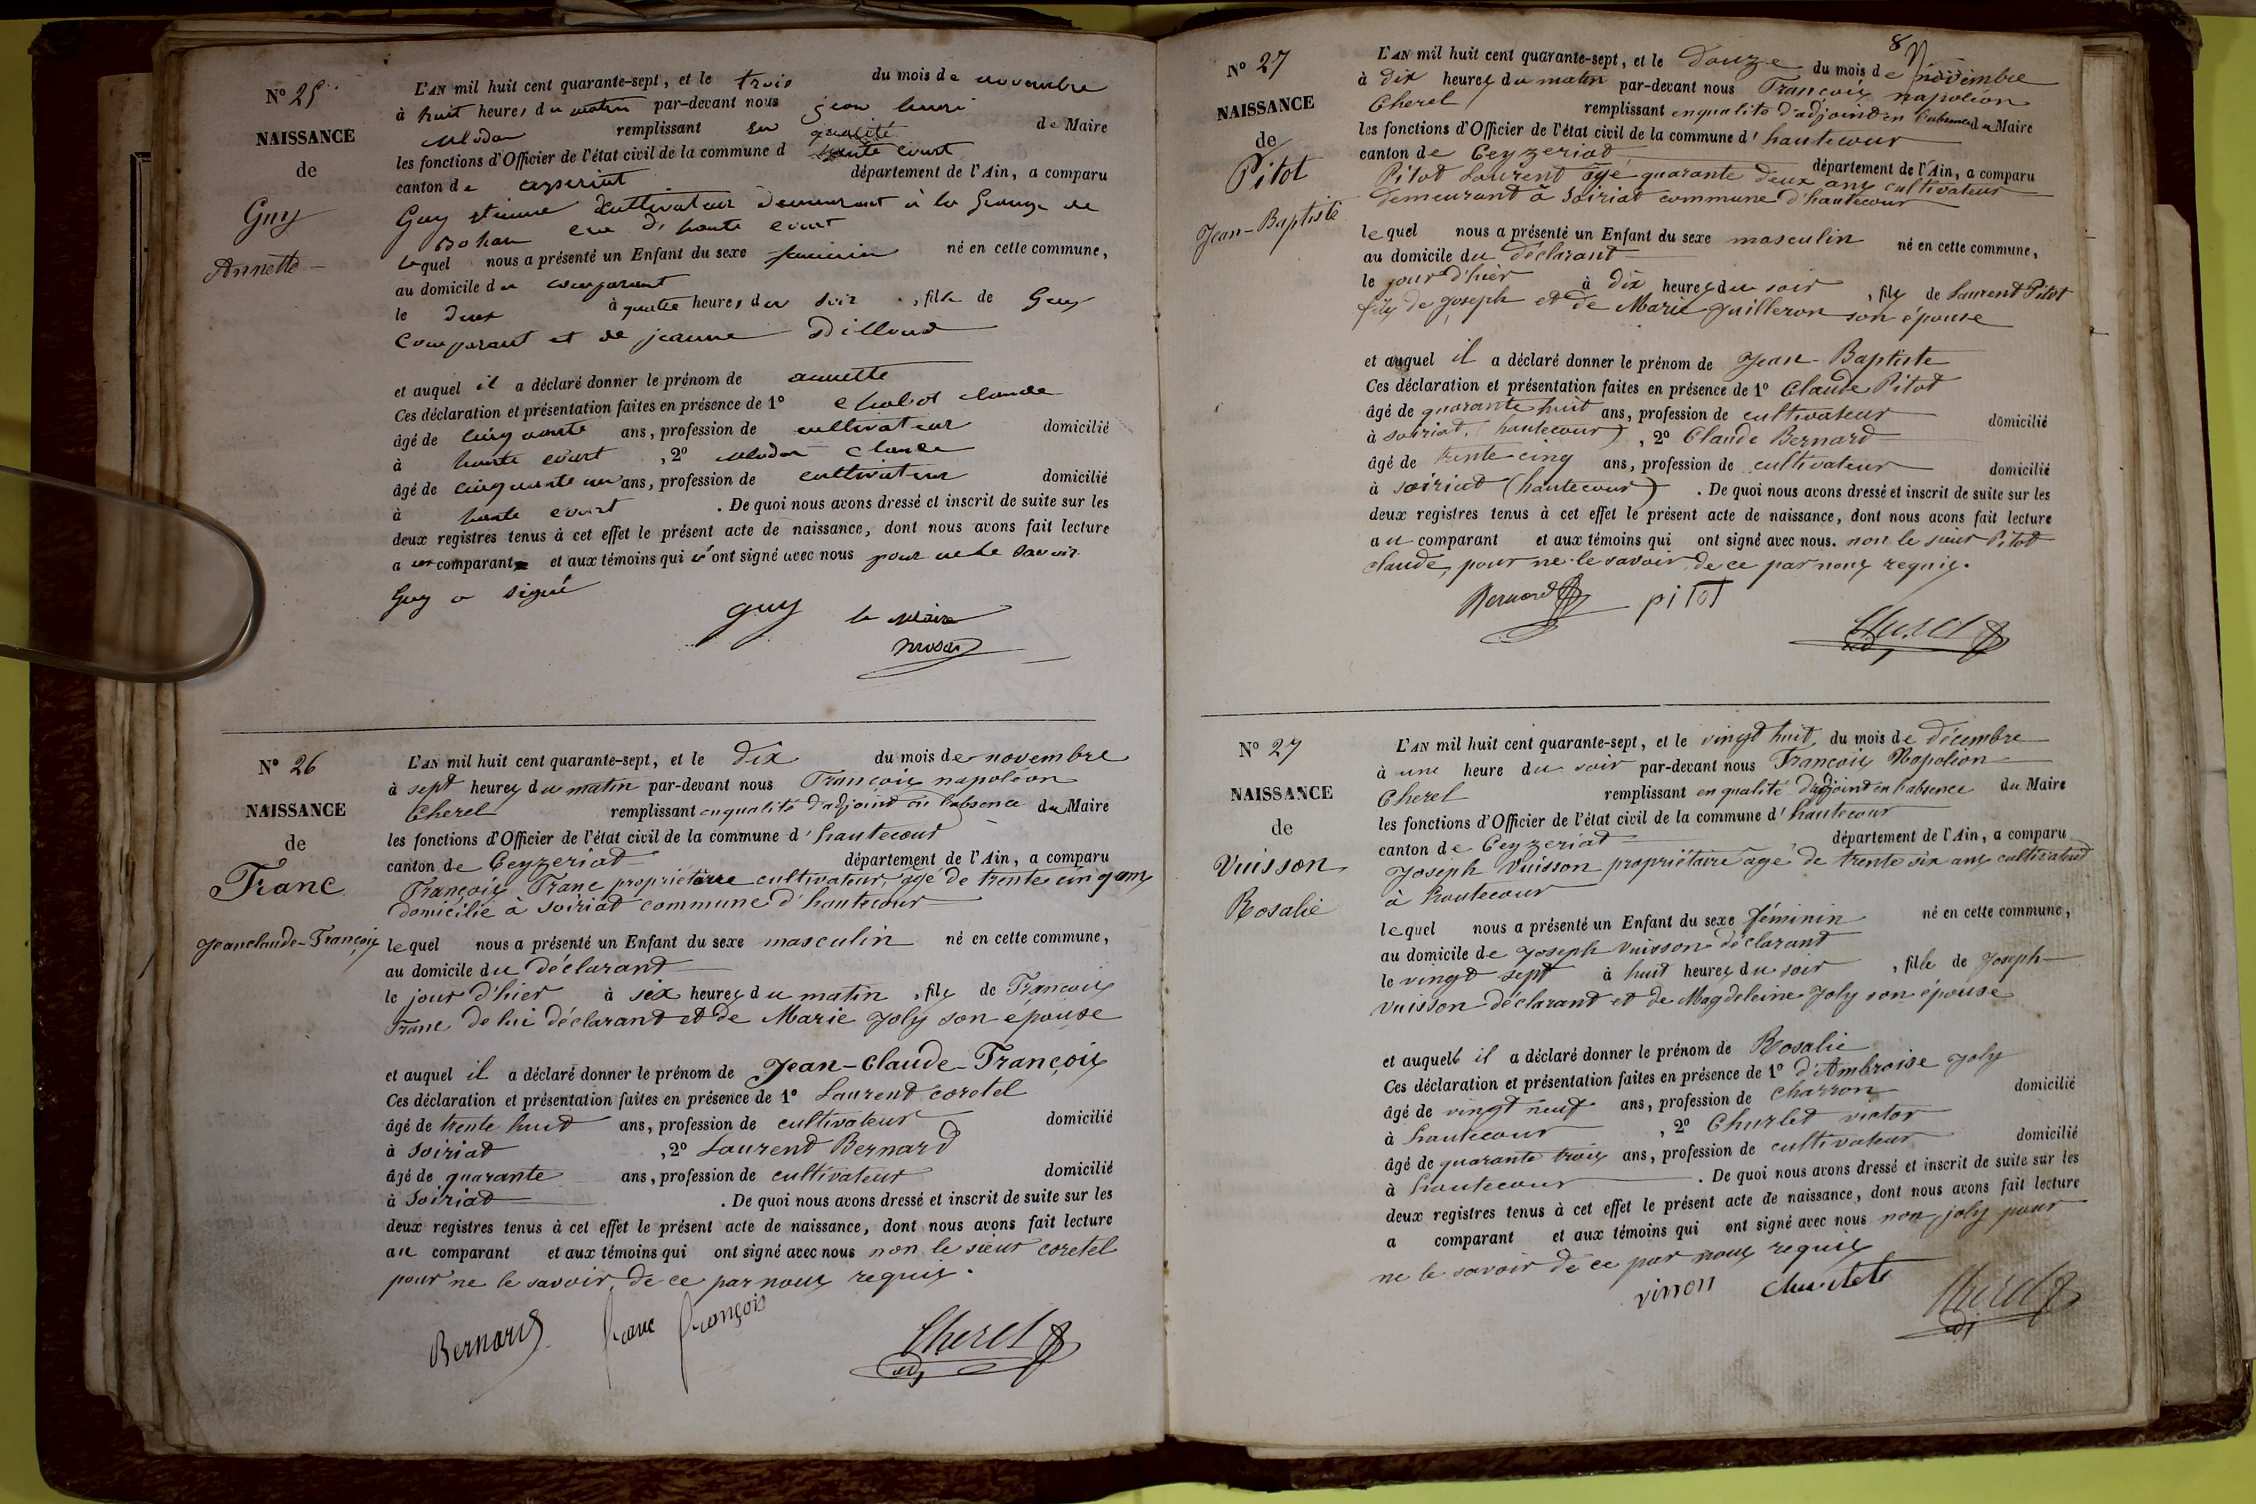 N° 25
NAISSANCE
de
Guy
Annette
L'AN mil huit cent quarante-sept, et le trois du mois de novembre
à huit heures du matin par-devant nous jean henri
Modas remplissant en qualité de Maire
les fonctions d'Officier de l'état civil de la commune d haute court
canton de ceyseriat département de l'Ain, a comparu
Guy etienne Cultivateur demeurant à la Grange de
Bohan cne d'haute court
lequel nous a présenté un Enfant du sexe feminin né en cette commune,
au domicile du comparant
le deux à quatre heures du soir, fille de Guy
comparant et de jeanne Dilloud
et auquel il a déclaré donner le prénom de annette
Ces déclaration et présentation faites en présence de 1° chabot claude
âgé de cinquante ans, profession de cultivateur domicilié
à haute court, 2° claude
âgé de cinquante un ans, profession de cultivateur domicilié
à haute court. De quoi nous avons dressé et inscrit de suite sur les
deux registres tenus à cet effet le présent acte de naissance, dont nous avons fait lecture
a comparant et aux témoins qui n'ont signé avec nous pour ne le savoir
Guy a signé
guy le Maire
N° 26
NAISSANCE
de
Franc
Jean claude-François
L'AN mil huit cent quarante-sept, et le dix du mois de novembre
à sept heures du matin par-devant nous François napoléon
Cherel remplissant en qualité d'adjoint en l'absence du Maire
les fonctions d'Officier de l'état civil de la commune d'hautecour
canton de Ceyzeriat département de l'Ain, a comparu
François Franc propriétaire cultivateur, agé de trente cinq ans
domicilié à Soiriat commune d'hautecour
lequel nous a présenté un Enfant du sexe masculin né en cette commune,
au domicile du déclarant
le jour d'hier à six heures du matin, fils de François
Franc de lui déclarant et de Marie Joly son épouse
et auquel il a déclaré donner le prénom de Jean-Claude-François
Ces déclaration et présentation faites en présence de 1° Laurent coretel
âgé de trente huit ans, profession de cultivateur domicilié
à Soiriat, 2° Laurent Bernard
âgé de quarante ans, profession de cultivateur domicilié
à Soiriat. De quoi nous avons dressé et inscrit de suite sur les
deux registres tenus à cet effet le présent acte de naissance, dont nous avons fait lecture
au comparant et aux témoins qui ont signé avec nous non le sieur coretel
pour ne le savoir, de ce par nous requis.
Bernard franc françois Cherel
adj
8
N° 27
NAISSANCE
de
Pitot
Jean-Baptiste
L'AN mil huit cent quarante-sept, et le douze du mois de novembre
à dix heures du matin par-devant nous François napoléon
Cherel remplissant en qualité d'adjoint en l'absence du Maire
les fonctions d'Officier de l'état civil de la commune d'hautecour
canton de Ceyzeriat département de l'Ain, a comparu
Pitot Laurent âgé quarante deux ans cultivateur
demeurant à Soiriat commune d'hautecour
lequel nous a présenté un Enfant du sexe masculin né en cette commune,
au domicile du déclarant
le jour d'hier à dix heures du soir, fils de Laurent Pitot
fils de Joseph et de Marie Juilleron son épouse
et auquel il a déclaré donner le prénom de Jean-Baptiste
Ces déclaration et présentation faites en présence de 1° Claude Pitot
âgé de quarante huit ans, profession de cultivateur domicilié
à soiriat, (hautecour), 2° Claude Bernard
âgé de trente cinq ans, profession de cultivateur domicilié
à soiriat (hautecour). De quoi nous avons dressé et inscrit de suite sur les
deux registres tenus à cet effet le présent acte de naissance, dont nous avons fait lecture
au comparant et aux témoins qui ont signé avec nous. non le sieur Pitot
claude, pour ne le savoir, de ce par nous requis.
Bernard pitot Cherel
adj
N° 27
NAISSANCE
de
Vuisson
Rosalie
L'AN mil huit cent quarante-sept, et le vingt huit du mois de décembre
à une heure du soir par-devant nous François Napoléon
Cherel remplissant en qualité d'adjoint en l'absence du Maire
les fonctions d'Officier de l'état civil de la commune d'hautecour
canton de Ceyzeriat département de l'Ain, a comparu
Joseph Vuisson propriétaire âgé de trente six ans cultivateur
à hautecour
lequel nous a présenté un Enfant du sexe féminin né en cette commune,
au domicile de Joseph Vuisson déclarant
le vingt sept à huit heures du soir, fille de Joseph
Vuisson déclarant et de Magdeleine Joly son épouse
et auquell il a déclaré donner le prénom de Rosalie
Ces déclaration et présentation faites en présence de 1° d'Ambroise Joly
âgé de vingt neuf ans, profession de charron domicilié
à hautecour, 2° Churlet victor
âgé de quarante trois ans, profession de cultivateur domicilié
à hautecour. De quoi nous avons dressé et inscrit de suite sur les
deux registres tenus à cet effet le présent acte de naissance, dont nous avons fait lecture
a comparant et aux témoins qui ont signé avec nous non joly pour
ne le savoir de ce par nous requis
Cherel
adj